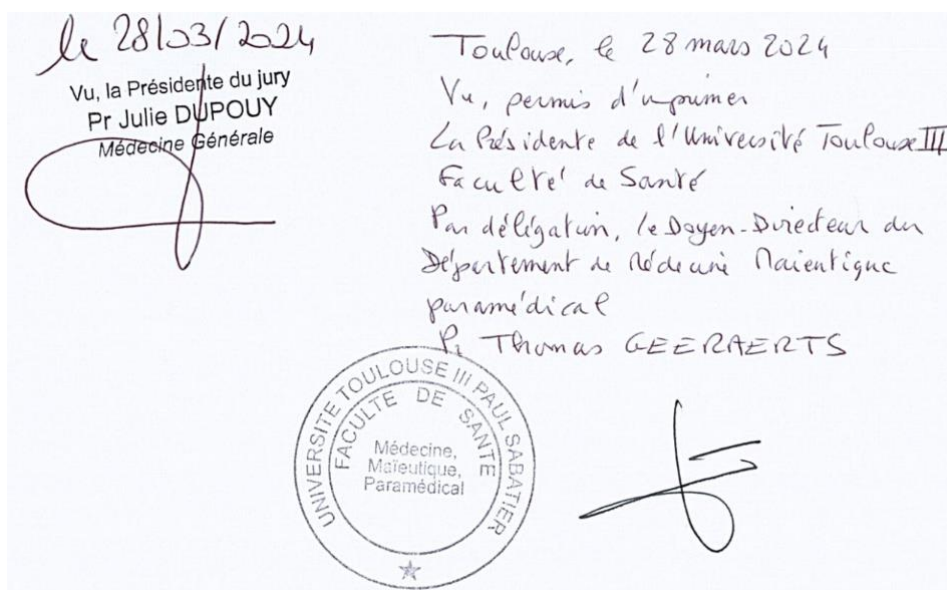 le 28/03/2024
Vu, la Présidente du jury
Pr Julie DUPOUY
Médecine Générale
Toulouse, le 28 mars 2024
Vu, permis d'imprimer
La Présidente de l'Université Toulouse III
Faculté de Santé
Par délégation, le Doyen-Directeur du
Département de Médecine Maieutique
paramédical
Pr Thomas GEERAERTS
UNIVERSITE TOULOUSE III PAUL SABATIER
FACULTE DE SANTE
Médecine,
Maïeutique,
Paramédical